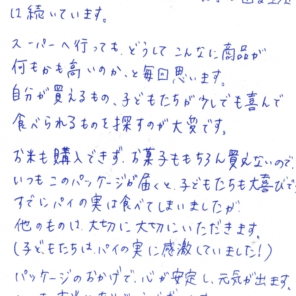 に続いています。
スーパーへ行っても、どうしてこんなに商品が
何もかも高いのか、と毎回思います。
自分が買えるもの、子どもたちが少しでも喜んで
食べられるものを探すのが大変です。
お米も購入できず、お菓子ももちろん買えないので、
いつもこのパッケージが届くと、子どもたちも大喜びで
すでにパイの実は食べてしまいましたが
他のものは、大切に大切にいただきます。
(子どもたちは、パイの実に感激していました!)
パッケージのおかげで、心が安定し、元気が出ます。